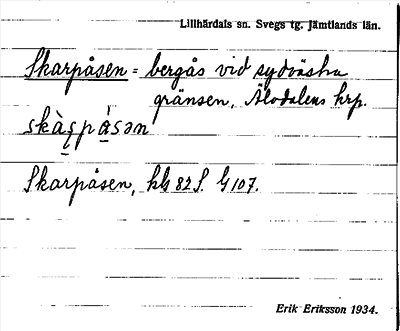 Lillhärdals sn. Svegs tg. Jämtlands län.
Skarpåsen = bergås vid sydvästra
gränsen, Älvdalens krp.
Skarpåsen, kbl 82 S. G 107.
Erik Eriksson 1934.